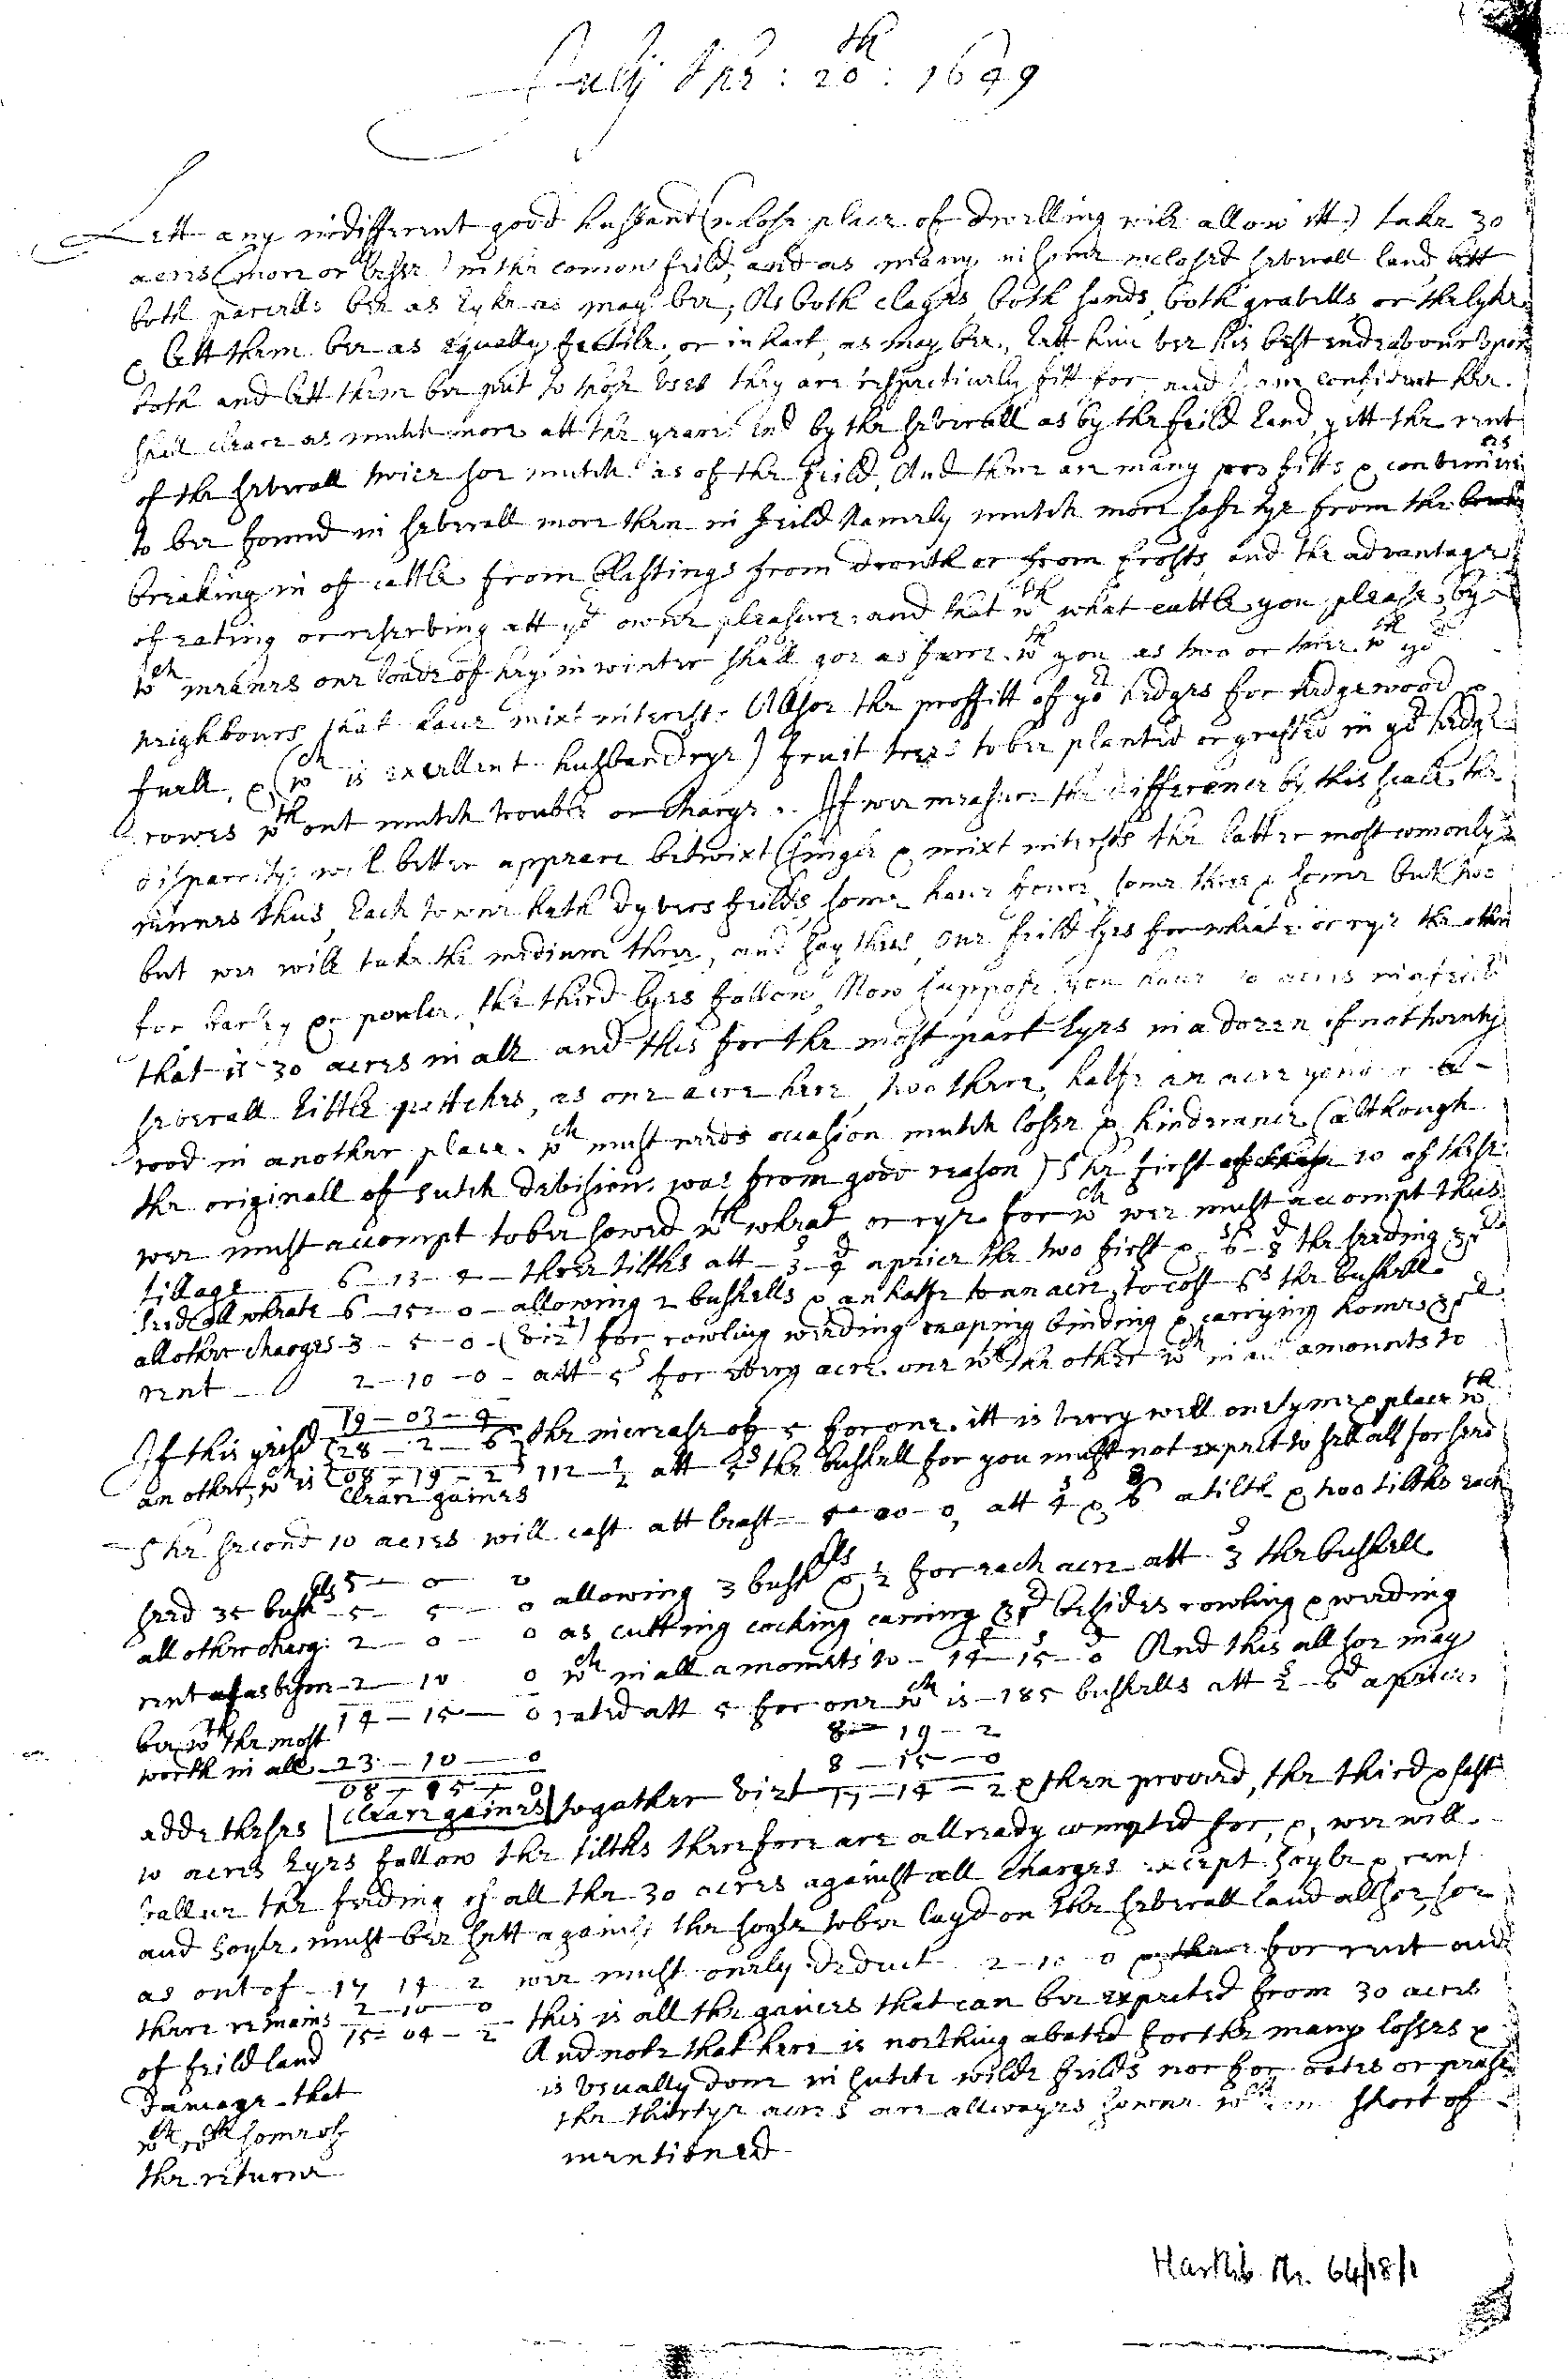 July the : 20th : 1649
Lett any indifferent good husband (whose place of dwelling will allow itt) take 30
acres (more or lesse) in the comon feild, and as many in some inclosed severall land, lett
both parcells bee as lyke as may bee, As both clayes, both sands, both gravells, or the lyke
& lett them bee as equally fertile, or in hart, as may bee, lett him doe his best endeavour upon
both and lett them bee put to those uses they are respectively fitt for, and I am confident hee
shall cleare as mutch more att the yeares end by the severall as by the feild land, yett the rent
of the severall twice soe mutch as of the feild, And there are many proffitts & conveniences
to bee found in severall more then in feild Namely mutch more safetye from the
breaking in of cattle from blastings from drouth or from frosts, and the advantage
of eating or reserving att yor owne pleasure, and that wth what cattle you please, by
wch meanes one loade of hey in winter shall goe as farre wth you as two or three wth yor
neighbours that have mixt interest. Allsoe the proffitt of yor hedges for hedgewood &
fuell, & (wch is excellent husbandrye) fruit trees to bee planted or grafted in yor hedge
rowes wthout mutch trouble or charge. If wee measure the difference by this scale, the
disparrity will better appeare betwixt single & mixt interests the latter most comonly
runnes thus, Each towne hath dyvers feilds, some have foure, some three & some but two
but wee will take the medium three, and say thus, one feild lyes for wheate or rye the other
for barly & powlse, the third lyes fallow, Now suppose you have 10 acres in a feild
that is 30 acres in all and this for the most part lyes in a dozen if not twenty
severall little pittches, as one acre here, two there, halfe an acre yonder a
rood in another place, wch must needs occasion mutch losse & hinderance (although
the originall of sutch devision was from good reason) The first 10 of these
wee must accompt to bee sowed wth wheat or rye for wch wee must accompt thus
tillage 6 - 13 - 4 - three tilths att - 3s - 4d a peice the two first & 6s - 8d the seeding &c
seed all wheate 6 - 15 - 0 - allowing 2 bushells & an halfe to an acre, to cost 6s the bushell
all other charges - 3 - 5 - 0 - (vizt) for rowling weeding reaping binding & carrying home &c
rent - 2 - 10 - 0 - att 5s for every acre one wth the other wch in all amounts to
19 - 03 - 4
If this yeild 28 - 2 - 6 the increase of 5 for one, itt is very well one tyme & place wth
another, wch is 08 - 19 - 2 112 - 1/2 att 5s the bushell for you must not expect to sell all for seed
cleare gaines
The second 10 acres will cost att least - 5 - 00 - 0, att 4s & 6s a tilth & two tilths each
5 - 0 0
seed 35 bushlls - 5 - 5 - 0 allowing 3 bushlls & 1/2 for each acre att 3s the bushell
all other charg: 2 - 0 - 0 as cutting cocking carring &c besides rowling & weeding
rent as before - 2 - 10 0 wch in all amounts to - 14 - 15 - 0 And this allsoe may
14 - 15 - 0
bee wth the most rated att 5 for one wch is - 185 bushells att 2s - 6d a peice,
worth in all - 23 - 10 - 0
08 - 15 - 0
8 - 19 - 2
8 - 15 - 0
adde theses cleare gaines togather vizt 17 - 14 - 2 & then proceed, the third & last
10 acres lyes fallow the tilths therefore are allready compted for, &, wee will
vallue the feeding of all the 30 acres against all charges except soyle & rent
and soyle must bee sett against the soyle to bee layd on the severall land allsoe, soe
as out of - 17 14 2 wee must onely deduct 2 - 10 0 for rent and
2 - 10 - 0
there remains 15 - 04 - 2 this is all the gaines that can bee expected from 30 acres
of feild land And note that here is northing abated for the many losses &
damage that is usually done in sutch wilde feilds nor for oates or pease
wch wth some of the thirtye acres are allwayes sowne wch short of
the returne mentioned
Hartlib. Mr. 64/18/1